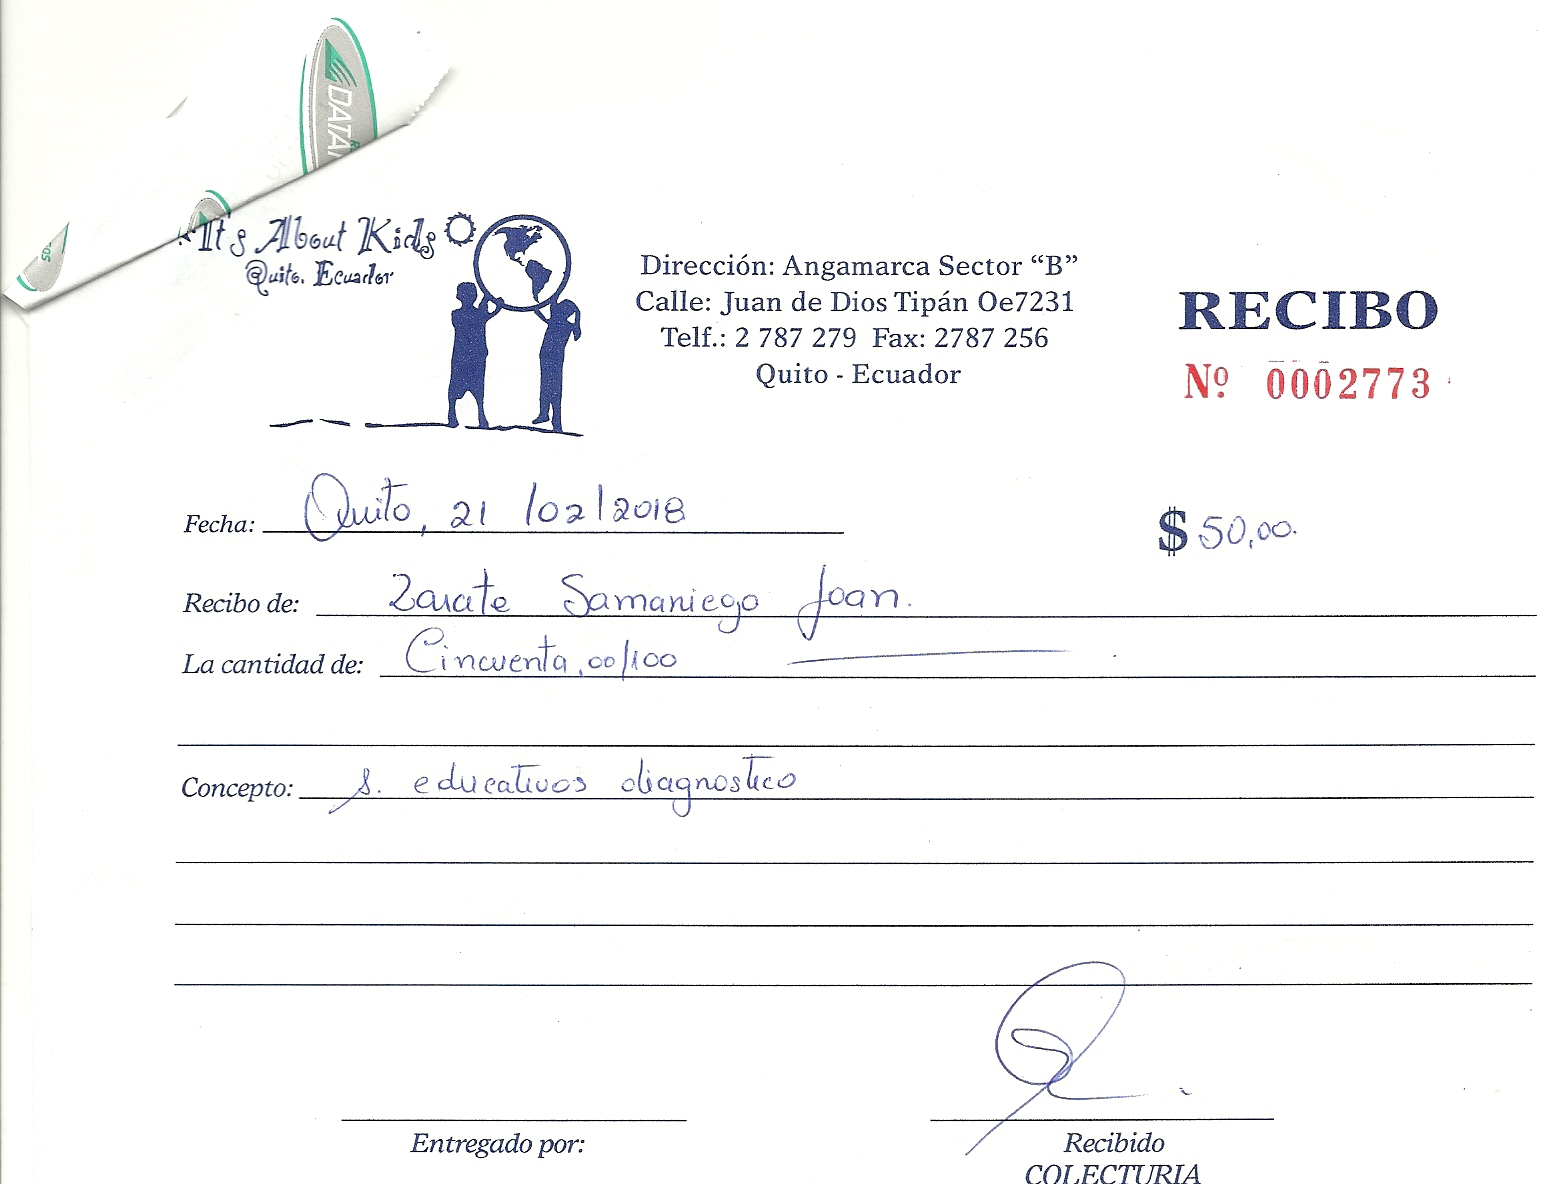 DATA
It's About Kids
Quito. Ecuador
Dirección: Angamarca Sector “B”
Calle: Juan de Dios Tipán Oe7231
Telf.: 2 787 279 Fax: 2787 256
Quito - Ecuador
RECIBO
Nº 0002773
Fecha: Quito, 21 /02/2018
$ 50,00.
Recibo de: Zarate Samaniego Joan.
La cantidad de: Cincuenta,00/100
Concepto: s. educativos diagnostico
Entregado por:
Recibido
COLECTURIA